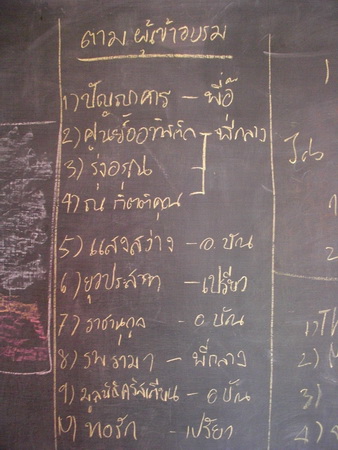 ตามผู้เข้าอบรม
1) ปัญญาคาร – พี่อี๊
2) ศูนย์ออทิสติก พี่กลาง
3) รุ่งอรุณ
4) ณ กิตติคุณ
5) แสงสว่าง – อ.บัณ
6) ยุวประสาท – เปรียว
7) ราชานุกูล – อ.บัณ
8) รพ.รามา – พี่กลาง
9) มูลนิธิคริสเตียน – อ.บัณ
10) ทอรัก – เปรียว
1)
2
1) TH
2)
3)
4)